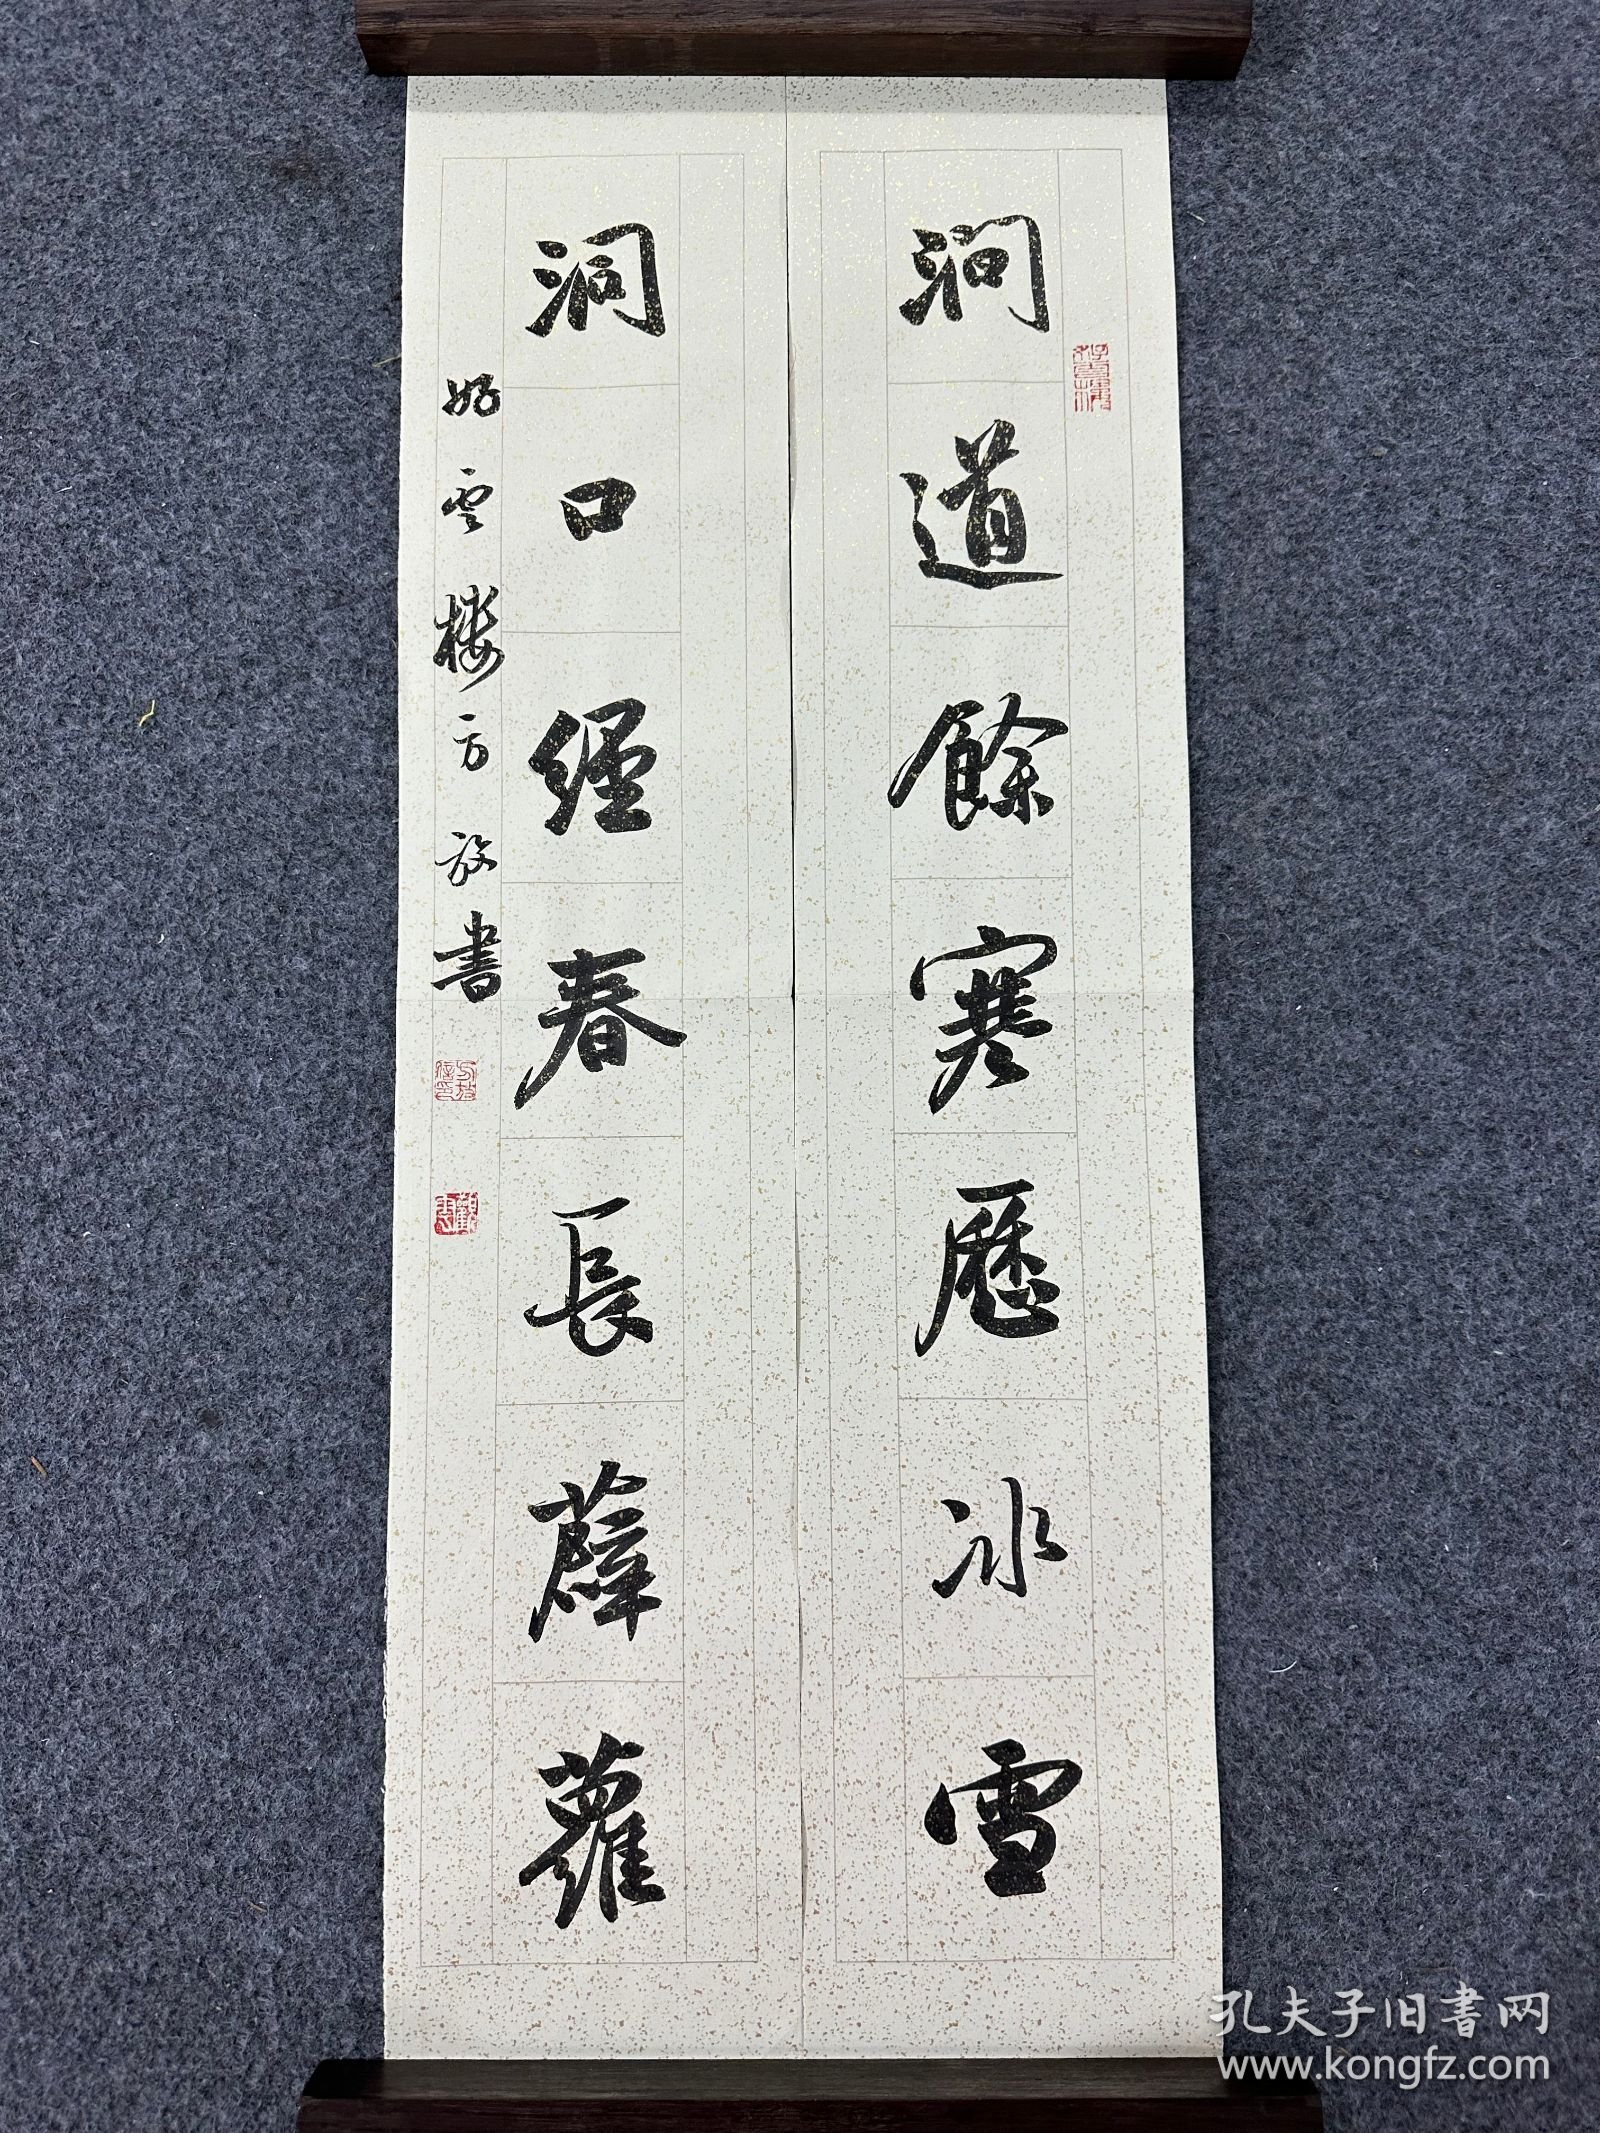 澗道餘寒歷冰雪
洞口經春長薜蘿
好雲樓方放書
孔夫子旧書网
www.kongfz.com